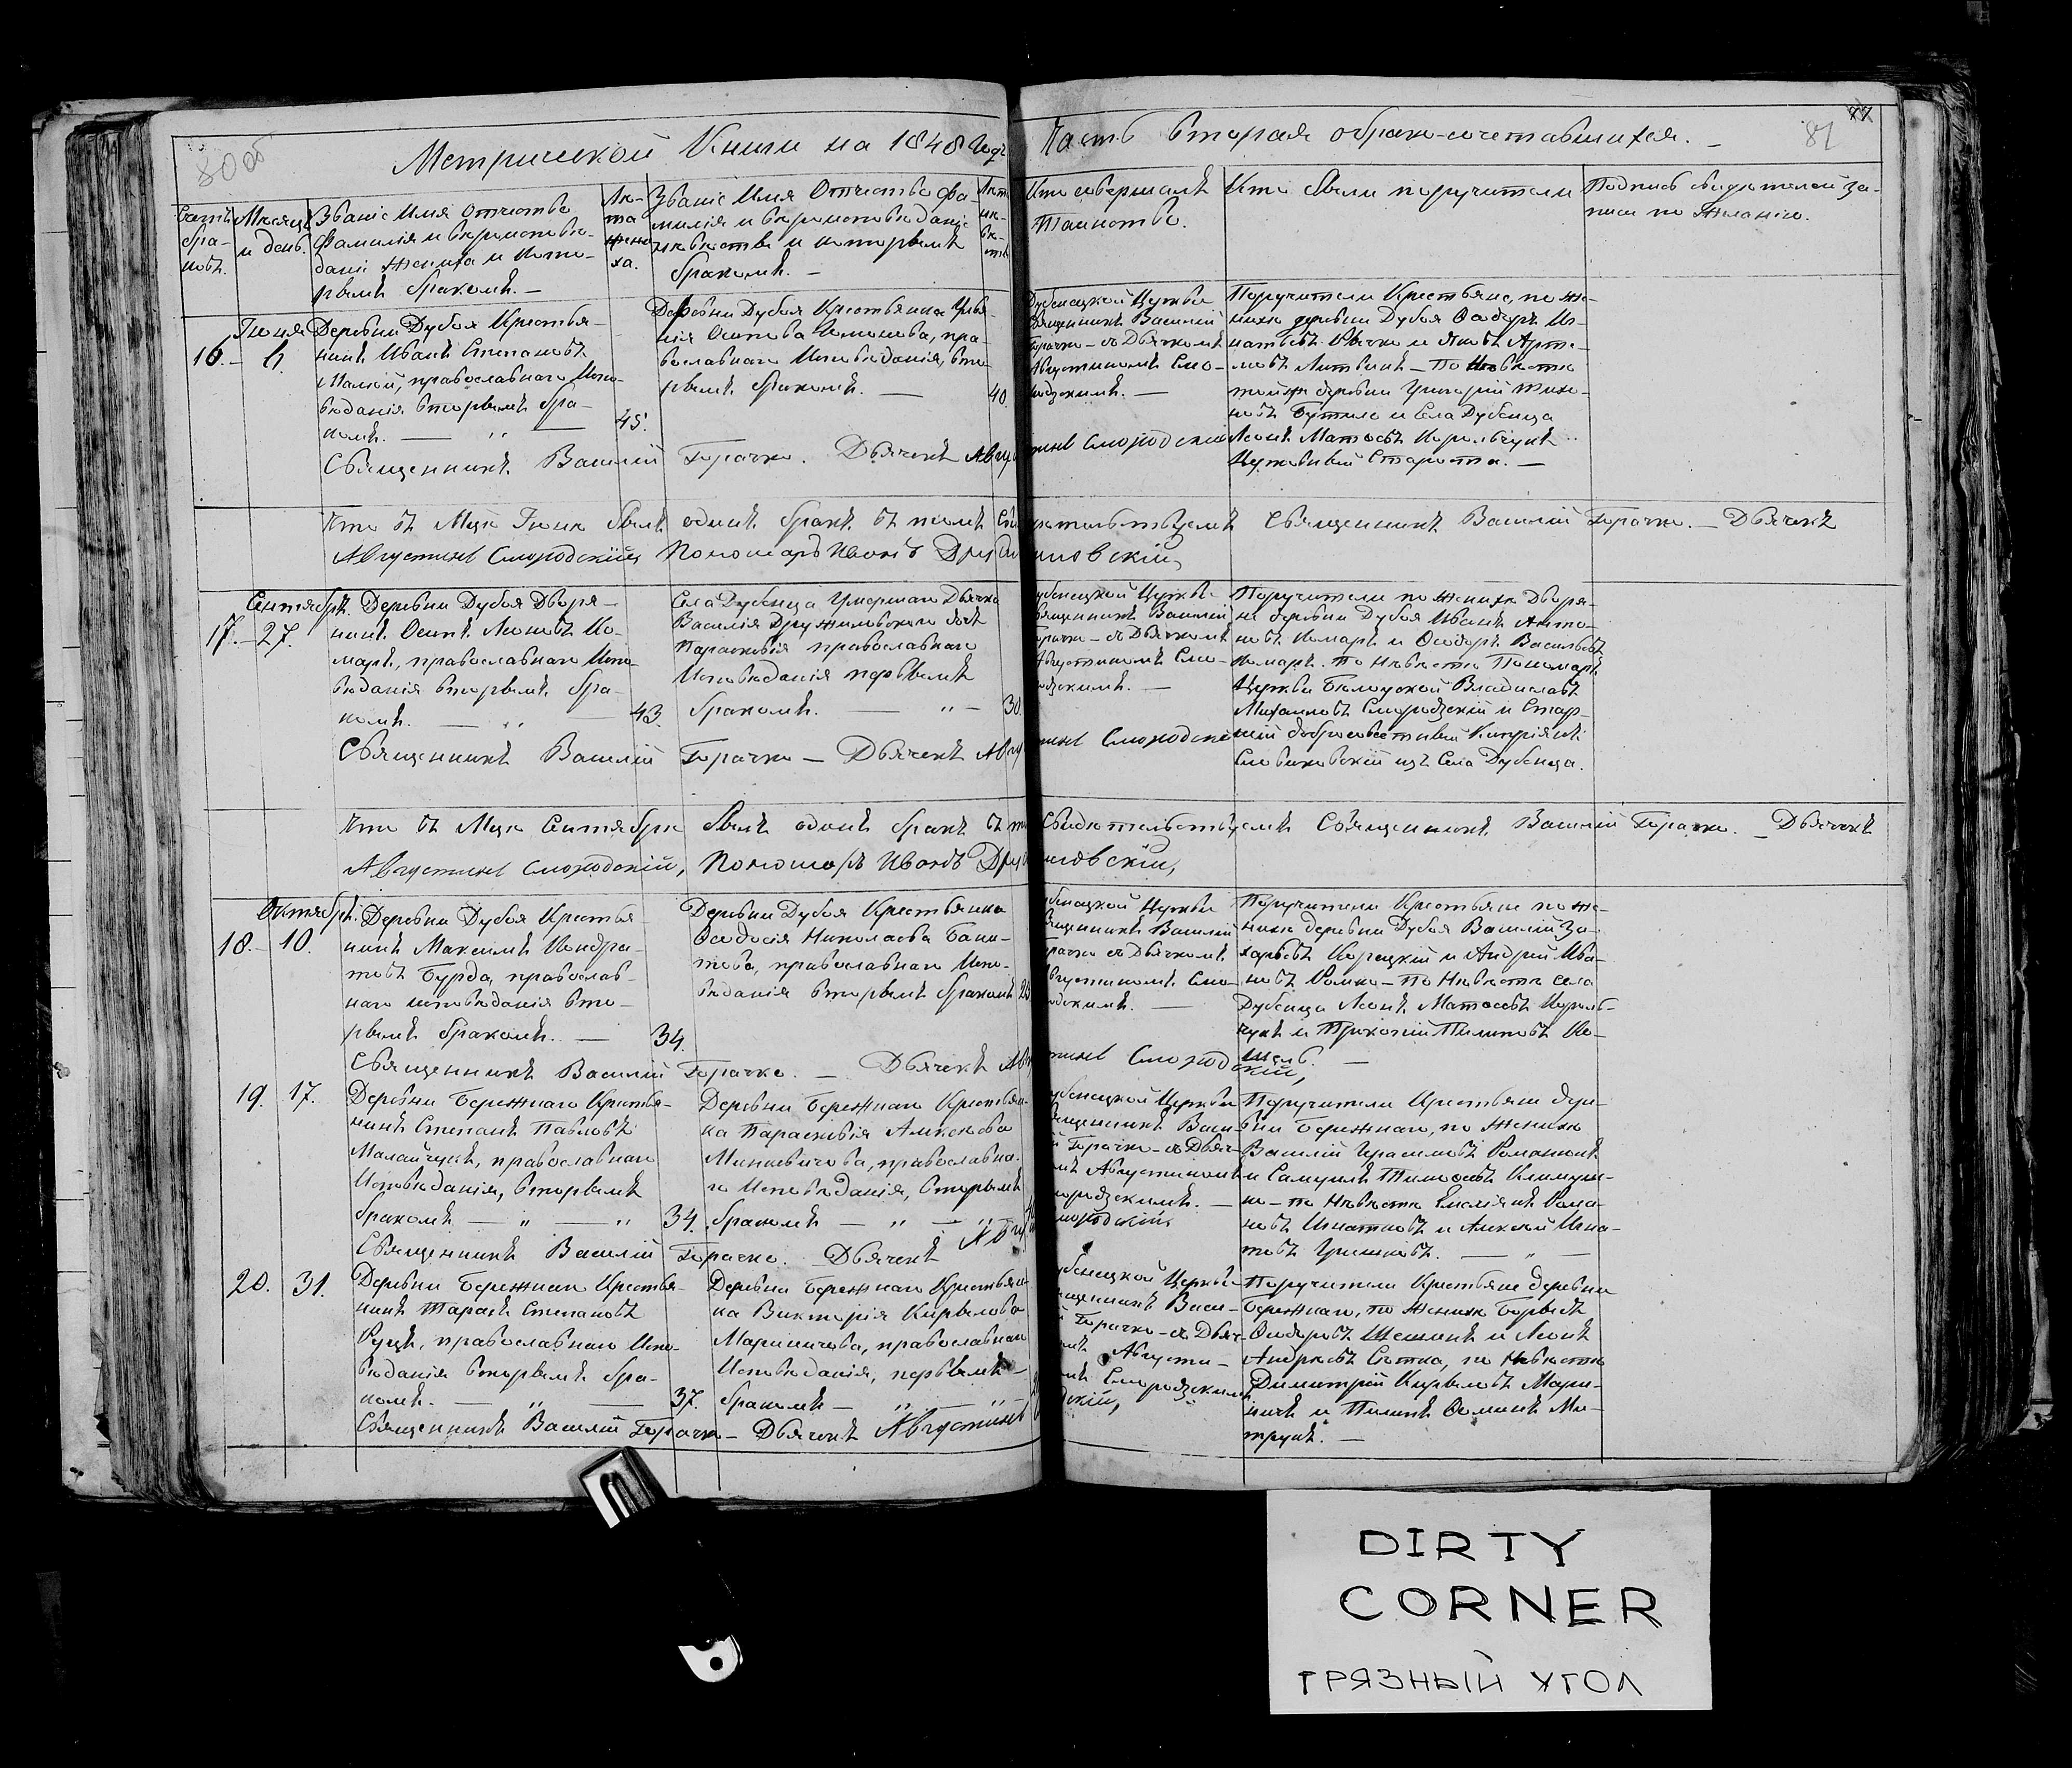 80об
Метрической Книги на 1848 Годъ
Часть вторая о бракосочетавшихся.
81
Счетъ браковъ.
Месяцъ и день.
Званіе Имя Отчество
Фамилія и вероисповѣ-
даніе Жениха и кото-
рымъ бракомъ. —
Лѣ-
та
жени-
ха.
Званіе Имя Отчество Фа-
милія и вероисповѣданіе
невѣсты и которымъ
бракомъ. —
Кто совершалъ
Таинство.
Кто были поручители
Подпись свидѣтелей за-
писи по желанію.
16.
Іюня
Деревни Дубоя Крестья-
нинъ Иванъ Степановъ
православнаго Испо-
вѣданія вторымъ бра-
комъ. — „ —
45.
Деревни Дубоя Крестьянка
Осипова православнаго Исповѣданія, вто-
рымъ бракомъ. —
40.
Дубенецкой Церкви
Священникъ Василій
Горачко - съ Дьячкомъ
Августиномъ Смо-
родзскимъ. —
Поручители Крестьяне, по же-
нихе деревни Дубоя Феодоръ Иг-
натьевъ и Яковъ Арте-
мовъ Литвинъ — По Невѣсте
тойже деревни Григорій Тихо-
новъ Бутыло и Села Дубенца
Леонъ Матвѣевъ Корольчукъ
Церковный Староста. —
Священникъ Василій Горачко. Дьячекъ Августинъ Смородскій
Что въ Мцѣ Іюнѣ былъ одинъ бракъ въ томъ Свидѣтельствуемъ Священникъ Василій Горачко. — Дьячекъ
Августинъ Смородскій, Пономарь Иванъ Дружиловскій,
17. — 27.
Сентября.
Деревни Дубоя Дворя-
нинъ Осипъ Леоновъ Ко-
маръ, православнаго Испо-
вѣданія вторымъ бра-
комъ. — „ —
43.
Села Дубенца Умершаго Дьячка
Василія Дружиловскаго дочь
Параскевія православнаго
Исповѣданія первымъ
бракомъ. — „ —
30.
Дубенецкой Церкви
Священникъ Василій
Горачко - съ Дьячкомъ
Августиномъ Смо-
родзскимъ. —
Поручители по Женихе Дворя-
не деревни Дубоя Иванъ Анто-
новъ Комаръ и Феодоръ Васильевъ
Комаръ. По Невѣсте Пономарь
Церкви Владиславъ
Михайловъ Смородзскій и Стар-
шій добросовестный Кипріянъ
изъ Села Дубенца.
Священникъ Василій Горачко — Дьячекъ Августинъ Смородскій
Что въ Мцѣ Сентябрѣ былъ одинъ бракъ въ томъ Свидѣтельствуемъ Священникъ Василій Горачко. — Дьячекъ
Августинъ Смородскій, Пономарь Иванъ Дружиловскій,
18. — 10.
Октября.
Деревни Дубоя Крестья-
нинъ Максимъ Кондра-
товъ Бурда, православ-
наго исповѣданія вто-
рымъ бракомъ. —
34.
Деревни Дубоя Крестьянка
Феодосія Николаева
православнаго Испо-
вѣданія вторымъ бракомъ
Дубенецкой Церкви
Священникъ Василій
Горачко съ Дьячкомъ
Августиномъ Смо-
родзскимъ. —
Поручители Крестьяне по же-
нихе деревни Дубоя Василій За-
харьевъ Корецкій и Андрей Ива-
новъ — По Невѣсте села
Дубенца Леонъ Матвѣевъ Король-
чукъ и Трихоній Пилиповъ Ко-
шель. —
Священникъ Василій Горачко. — Дьячекъ Августинъ Смородскій,
19. 17.
Деревни Бережнаго Крестья-
нинъ Степанъ Павловъ
Малайчукъ, православнаго
Исповѣданія, вторымъ
бракомъ — „ — „
34.
Деревни Бережнаго Крестьян-
ка Параскевія Алексѣева
Минкевичова, православна-
го Исповѣданія, вторымъ
бракомъ — „ — „
Дубенецкой Церкви
Священникъ Васи-
лій Горачко - съ Дьяч-
комъ Августиномъ
Смородзскимъ. —
Смородскій,
Поручители Крестьяне дере-
вни Бережнаго, по Женихе
Василій Герасимовъ Романюкъ
и Самуилъ Тимофѣевъ
— по Невѣсте Емеліянъ Рома-
новъ Игнатковъ и Алексѣй Игна-
товъ Гришковъ. — „ —
Священникъ Василій Горачко. Дьячекъ Августинъ
20. 31.
Деревни Бережнаго Крестья-
нинъ Тарасъ Степановъ
Руцкъ, православнаго Испо-
вѣданія вторымъ бра-
комъ. — „ —
37.
Деревни Бережнаго Крестьян-
ка Викторія Кирылова
Мариничова, православнаго
Исповѣданія, первымъ
бракомъ — „ — „
Дубенецкой Церкви
Священникъ Васи-
лій Горачко - съ Дьяч-
комъ Августи-
номъ Смородзскимъ
Поручители Крестьяне деревни
Бережнаго, по Женихе Борысъ
Феодоровъ и Леонъ
Андреевъ Сытка, по Невѣсте
Димитрій Кирыловъ Мари-
ничъ и Пилипъ Фоминъ Ми-
трукъ. —
Священникъ Василій Горачко — Дьячекъ Августинъ
DIRTY
CORNER
ГРЯЗНЫЙ УГОЛ